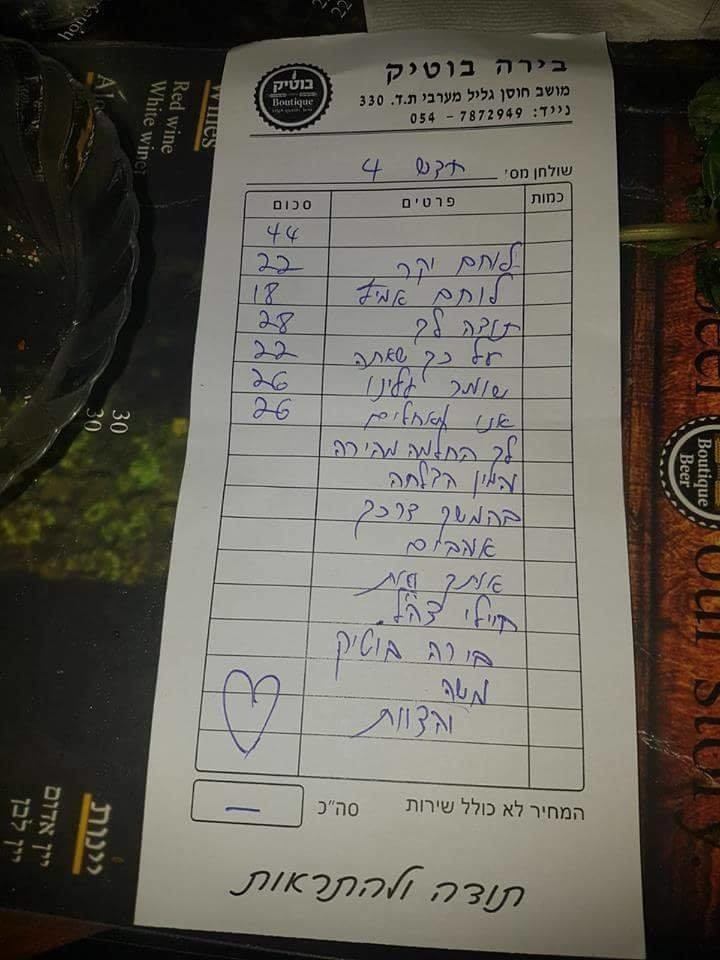 honey
22
Wines
Red wine
White wine
30
30
בוטיק
Boutique
בירה בוטיק
מושב חוסן גליל מערבי ת.ד. 330
נייד: 7872949 - 054
שולחן מס' חדש 4
כמות פרטים סכום
44
לוחם יקר 22
לוחם אמיץ 18
תודה לך 28
על כך שאתה 22
שומר עלינו 26
אנו מאחלים 26
לך החלמה מהירה
והמון הצלחה
בהמשך דרכך
אוהבים
אותך ואת
חיילי צה"ל.
בירה בוטיק
משה
והצוות
המחיר לא כולל שירות סה"כ —
תודה ולהתראות
יינות
יין אדום
יין לבן
Boutique
Beer
Beer
our story